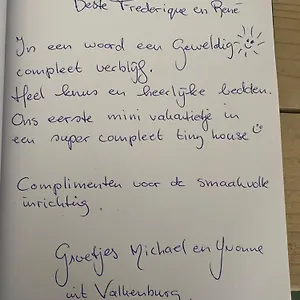 Beste Frederique en René
In een woord een Geweldig-
compleet verblijf.
Heel knus en heerlijke bedden.
Ons eerste mini vakantietje in
een super compleet tiny house
Complimenten voor de smaakvolle
inrichting.
Groetjes Michael en Yvonne
uit Valkenburg.